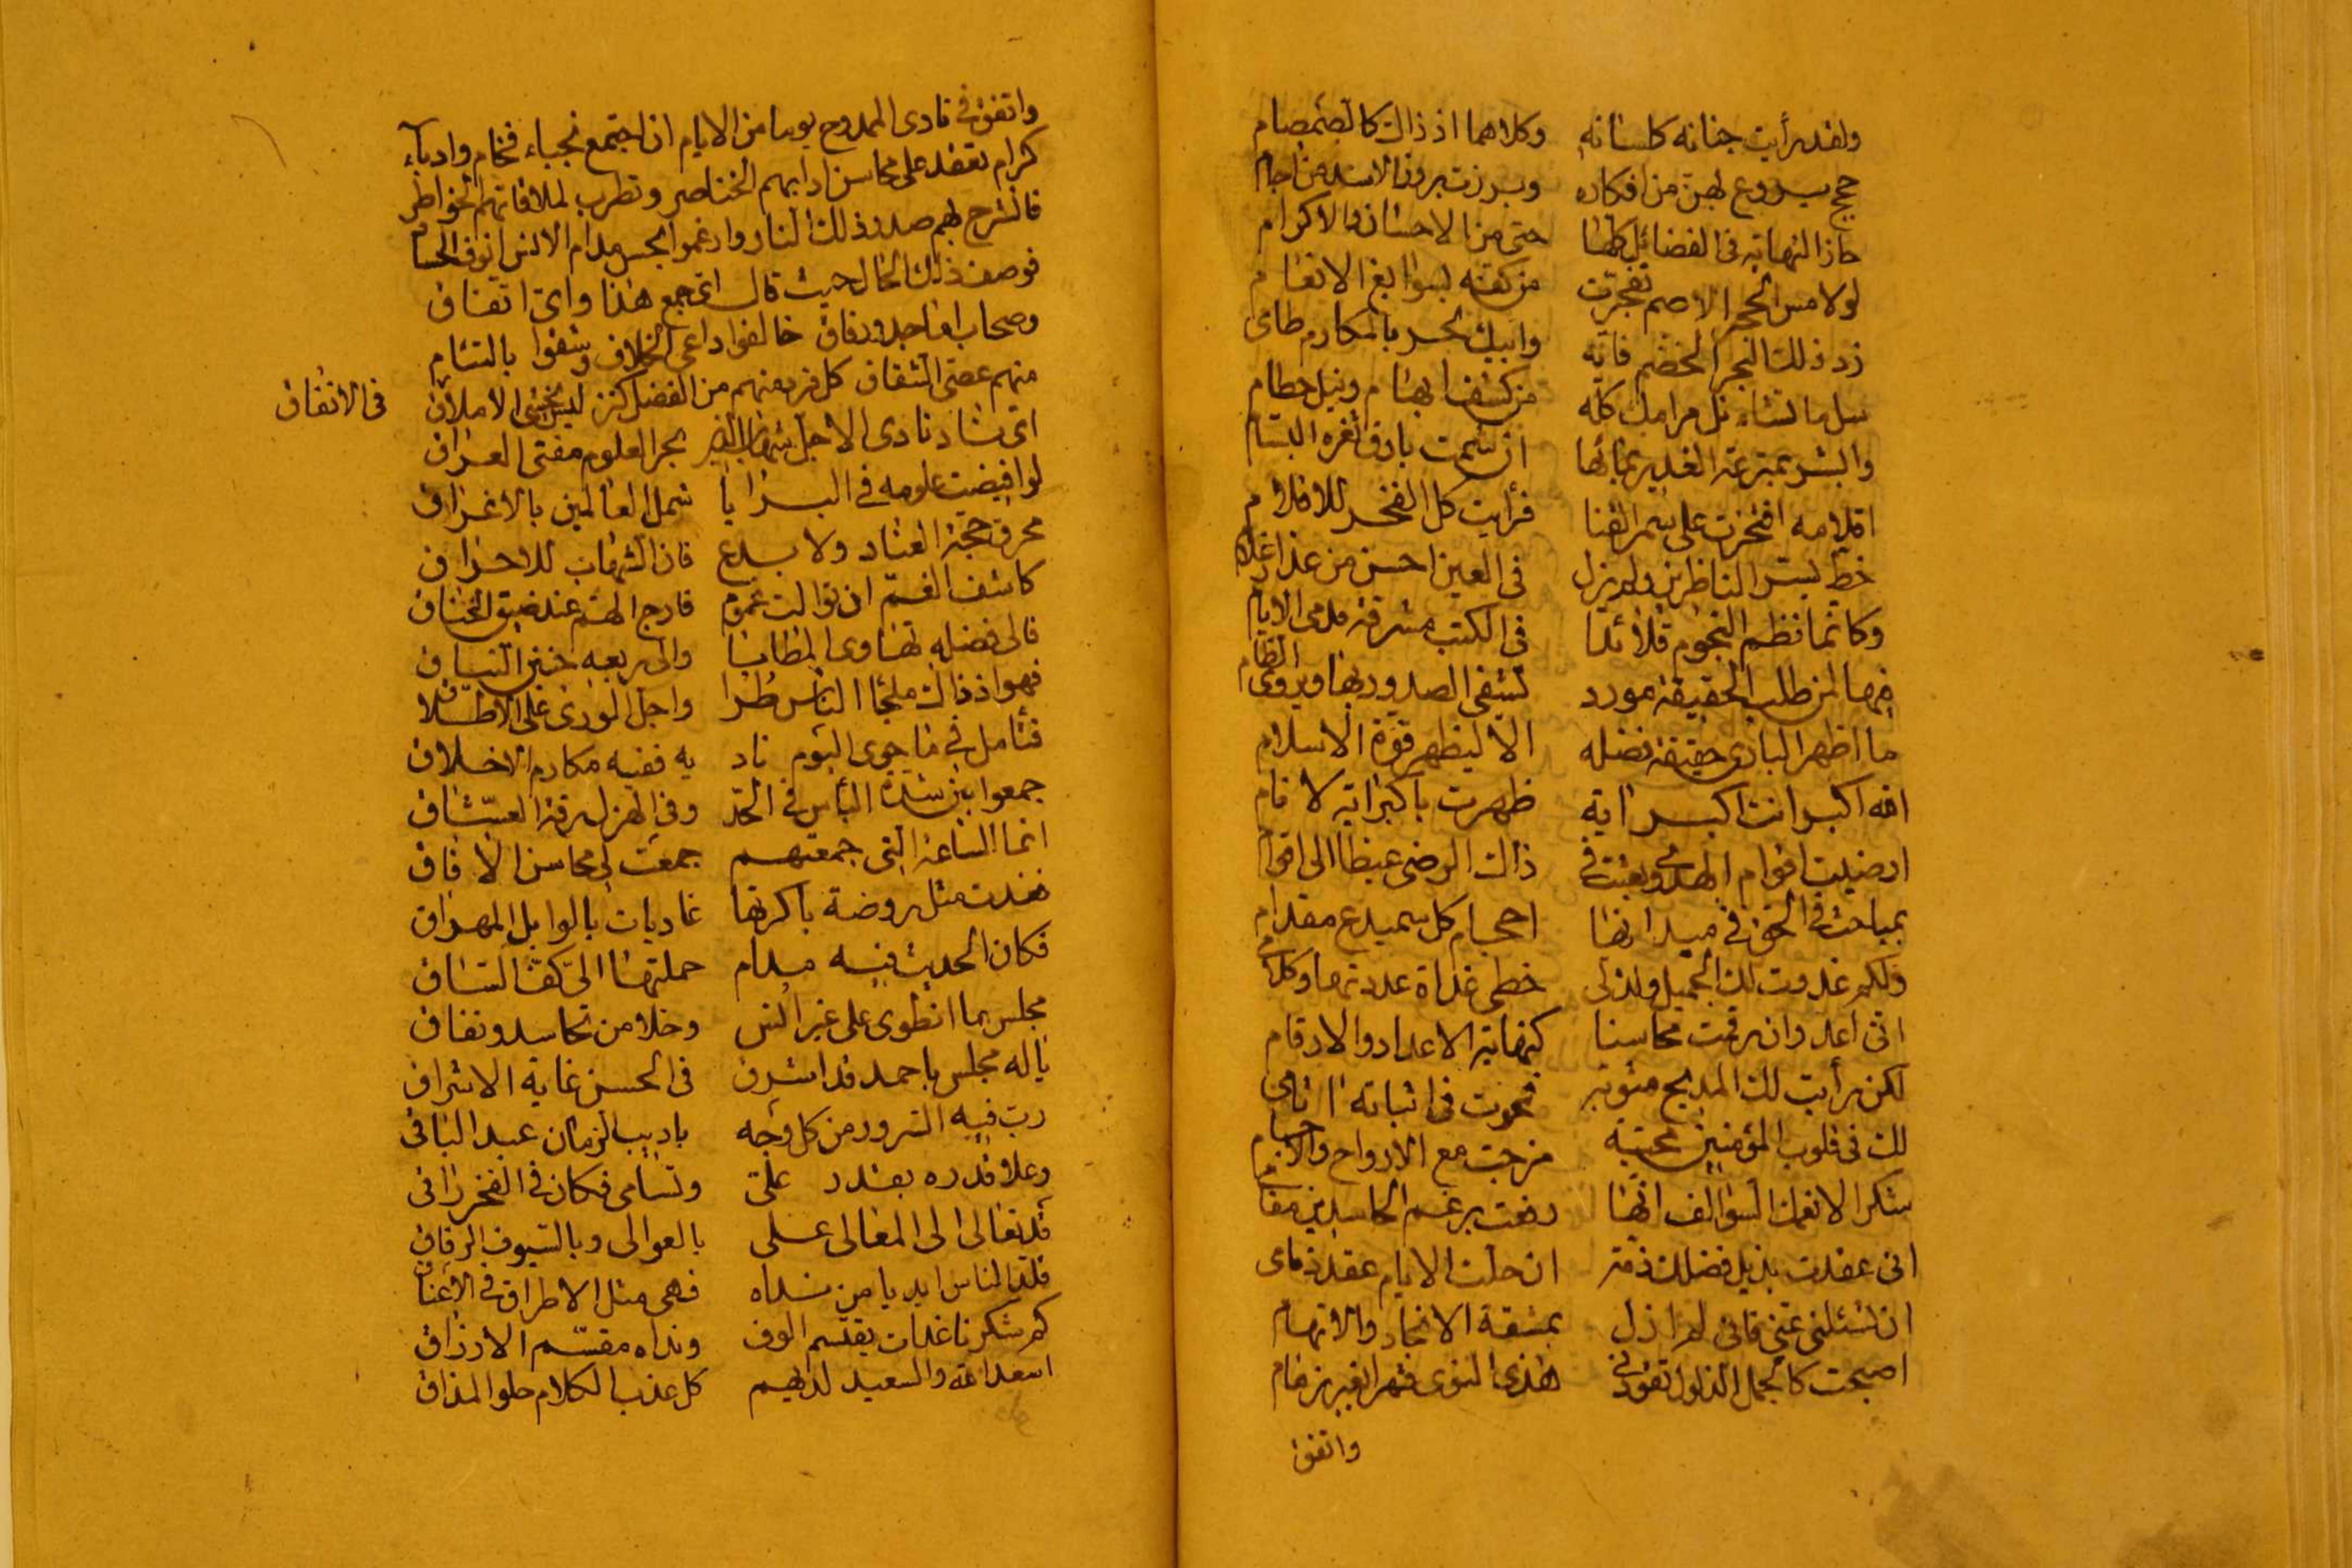 ولقد رأيت جنانه كلسانه وكلاهما اذ ذاك كالصمصام
حجج يروع لهن من افكاره وبرزت بروز الاسد من اجام
حاز النهاية في الفضائل كلها حتى من الاحسان والاكرام
لو لامس الحجر الاصم تفجرت من كفه بسوابغ الانعام
زد ذلك البحر الخضم فانه وابيك بحر بالمكارم طامى
سل ما تشاء تنل مرامك كله من كشف ابهام ونيل حطام
والبشر بمنزعة الغدير بمائها ان شمت بارق ثغره البسام
اقلامه افتخرت على سمر القنا فرأيت كل الفخر للاقلام
خط يسر الناظرين ولم يزل في العين احسن من عذار غلام
وكانما نظم النجوم قلائدا في الكتب مشرقة مدى الايام
فيها لمن طلب الحقيقة مورد تشفى الصدور بها ويروى الظامى
ما اظهر البارى حقيقة فضله الا ليظهر قوة الاسلام
الله اكبر انت اكبر اية ظهرت باكبر اية لانام
ارضيت اقوام الهدى وبعثت في ذاك الرضى غيظا الى اقوام
بمباحث في الحق في ميدانها احجام كل سميدع مقدام
ولكم غدوت لك الجميل ولذ لى خطى غداة عددتها وكلامى
انى اعد وان رقمت محاسنا كنهاية الاعداد والارقام
لكن رأيت لك المديح مثوبة فمحوت في اثباته اثامى
لك في قلوب المؤمنين محبة مزجت مع الارواح والاجسام
شكرا لانعمك السوالف انها رفعت برغم الحاسدين مقامى
انى عقدت بذيل فضلك ذمة ان حلت الايام عقد ذمامى
ان تسئلنى عنى فانى لم ازل بمشقة الانجاد والاتهام
اصبحت كالجمل الذلول تقودنى هذى النوى قهرا بغير زمام
واتفق
واتفق في نادى الممدوح يوما من الايام ان اجتمع نجباء فخام وادباء
كرام تعقد على محاسن ادابهم الخناصر وتطرب لملاقاتهم الخواطر
فانشرح بهم صدر ذلك الناد وارغموا بحسن مدام الانس انوف الحساد
فوصف ذلك الحال حيث قال اى جمع هذا واى اتفاق
وصحاب اماجد ورفاق خالفوا داعى الخلاف وشقوا بالتئام
منهم عصى الشقاق كل فرد منهم من الفضل كنز ليس يخشى الاملاق في الانفاق
اى ناد نادى الاجل شهاب الدين بحر العلوم مفتى العراق
لو افيضت علومه في البرايا شمل العالمين بالاغراق
محرق حجة العناد ولا بدع فان الشهاب للاحراق
كاشف الغم ان توالت غموم فارج الهم عند ضيق الخناق
فالى فضله تهاوى المطايا والى ربعه حنين النياق
فهو اذ ذاك ملجأ الناس طرا واجل الورى على الاطلاق
فتأمل في ما حوى اليوم ناد يه ففيه مكارم الاخلاق
جمعوا بين شدة البأس في الجد وفي الهزل رقة العشاق
انما الساعة التى جمعتهم جمعت لى محاسن الافاق
فغدت مثل روضة باكرتها غاديات بالوابل المهراق
فكان الحديث فيه مدام حملتها الى كف الساق
مجلس ما انطوى على غير انس وخلا من تحاسد ونفاق
ياله مجلس باحمد قد اشرق في الحسن غاية الاشراق
رب فيه السرور من كل وجه باديب الزمان عبد الباقى
وعلا قدره بقدر على وتسامى فكان في الفخر راقى
قد تعالى الى المعالى على بالعوالى وبالسيوف الرقاق
قلد الناس ايديا من نداه فهى مثل الاطواق في الاعناق
كم شكرنا غداة يقسم الوف ونداه مقسم الارزاق
اسعد الله والسعيد لديهم كل عذب الكلام حلو المذاق